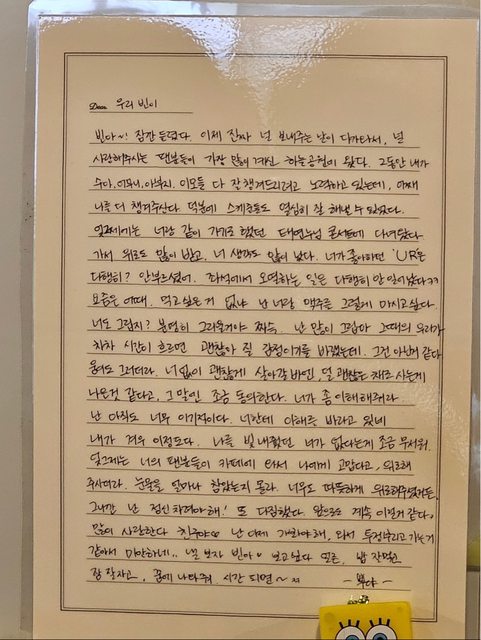 Dear. 우리 빈이
빈아~! 잠깐 들렀다. 이제 진짜 널 보내주는 날이 다가와서, 널
사랑해주시는 팬분들이 가장 많이 계신 하늘공원에 왔다. 그동안 내가
수아, 어머니, 아버지, 이모들 다 잘 챙겨드리려고 노력하고 있는데, 어째
나를 더 챙겨주신다 덕분에 스케줄들도 열심히 잘 해낼 수 있었다.
엊그제에는 너랑 같이 가기로 했던 태연누님 콘서트에 다녀왔다.
가서 위로도 많이 받고, 너 생각도 많이 났다. 너가 좋아하던 'UR'은
다행히? 안부르셨어. 객석에서 오열하는 일은 다행히 안 일어났다ㅋㅋ
요즘은 어때. 먹고싶은 거 없냐 난 너랑 맥주를 그렇게 마시고 싶다.
너도 그렇지? 분명히 그리울거야 짜슥. 난 많이 그립다 그때의 우리가
차차 시간이 흐르면 괜찮아 질 감정이기를 바랬는데. 그건 아닌거 같다
뭔가 그러더라. 너 없이 괜찮게 살아갈 바엔, 덜 괜찮은 채로 사는게
나은것 같다고, 그 말엔 조금 동의한다. 너가 좀 이해해주라
난 아직도 너무 이기적이다. 너한테 이해를 바라고 있네
내가 겨우 이정도다. 나를 빛내줬던 너가 없다는게 조금 무서워.
엊그제는 너의 팬분들이 카페에 와서 나에게 고맙다고, 위로해
주시더라. 눈물을 얼마나 참았는지 몰라. 너무도 따뜻하게 위로해주셨거든,
그니깐 난 '정신차려야해!' 또 다짐했다. 앞으로도 계속 이럴거 같다,
많이 사랑한다 친구야 난 이제 가봐야해, 와서 투정부리고 가는거
같아서 미안하네.. 낼 보자 빈아 보고싶다 얼른, 밥 잘먹고
잠 잘자고, 꿈에 나타나줘. 시간 되면~ ㅉ - 뿌다 -